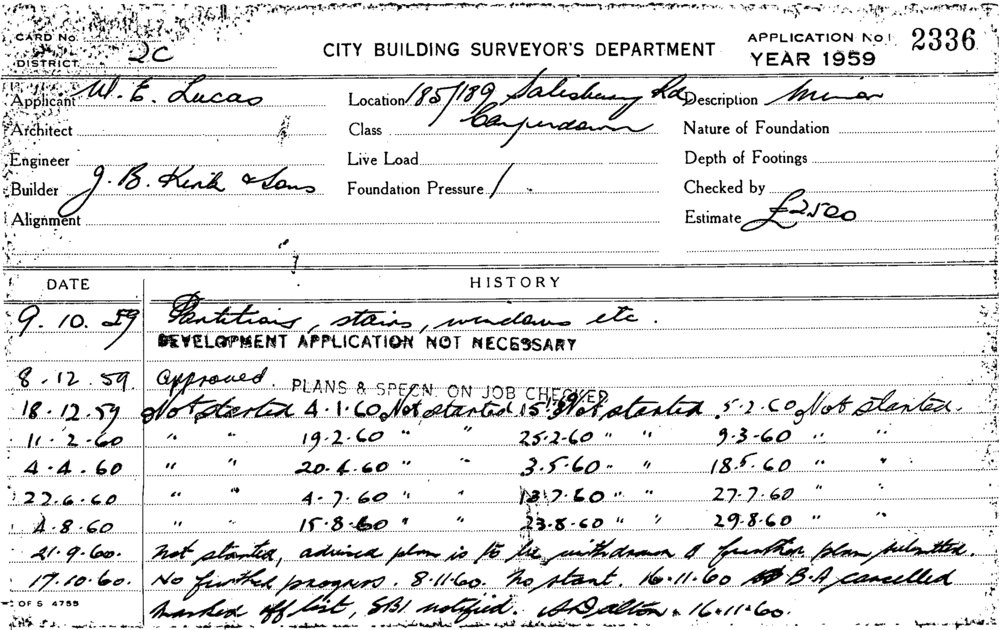 CARD No.
DISTRICT 2C
CITY BUILDING SURVEYOR'S DEPARTMENT
APPLICATION No. 2336
YEAR 1959
Applicant W. E. Lucas
Location 185/189 Salisbury Rd
Camperdown
Description Minor
Architect
Class
Nature of Foundation
Engineer
Live Load
Depth of Footings
Builder J. B. Kirk & Sons
Foundation Pressure /
Checked by
Alignment
Estimate £2500
DATE HISTORY
9.10.59 Partitions, stairs, windows etc.
DEVELOPMENT APPLICATION NOT NECESSARY
8.12.59 Approved. PLANS & SPECN. ON JOB CHECKED
18.12.59 Not started 4.1.60 Not started 15. Not started 5.2.60 Not started.
11.2.60 " " 19.2.60 " " 25.2.60 " " 9.3.60 " "
4.4.60 " " 20.4.60 " " 3.5.60 " " 18.5.60 " "
22.6.60 " " 4.7.60 " " 13.7.60 " " 27.7.60 " "
4.8.60 " " 15.8.60 " " 23.8.60 " " 29.8.60 " "
21.9.60. not started, advised plan is to be withdrawn & further plan submitted.
17.10.60. No further progress. 8.11.60. No start. 16.11.60 B.A cancelled
marked off list, SBI notified. A Dalton. 16.11.60.
OF S 4755